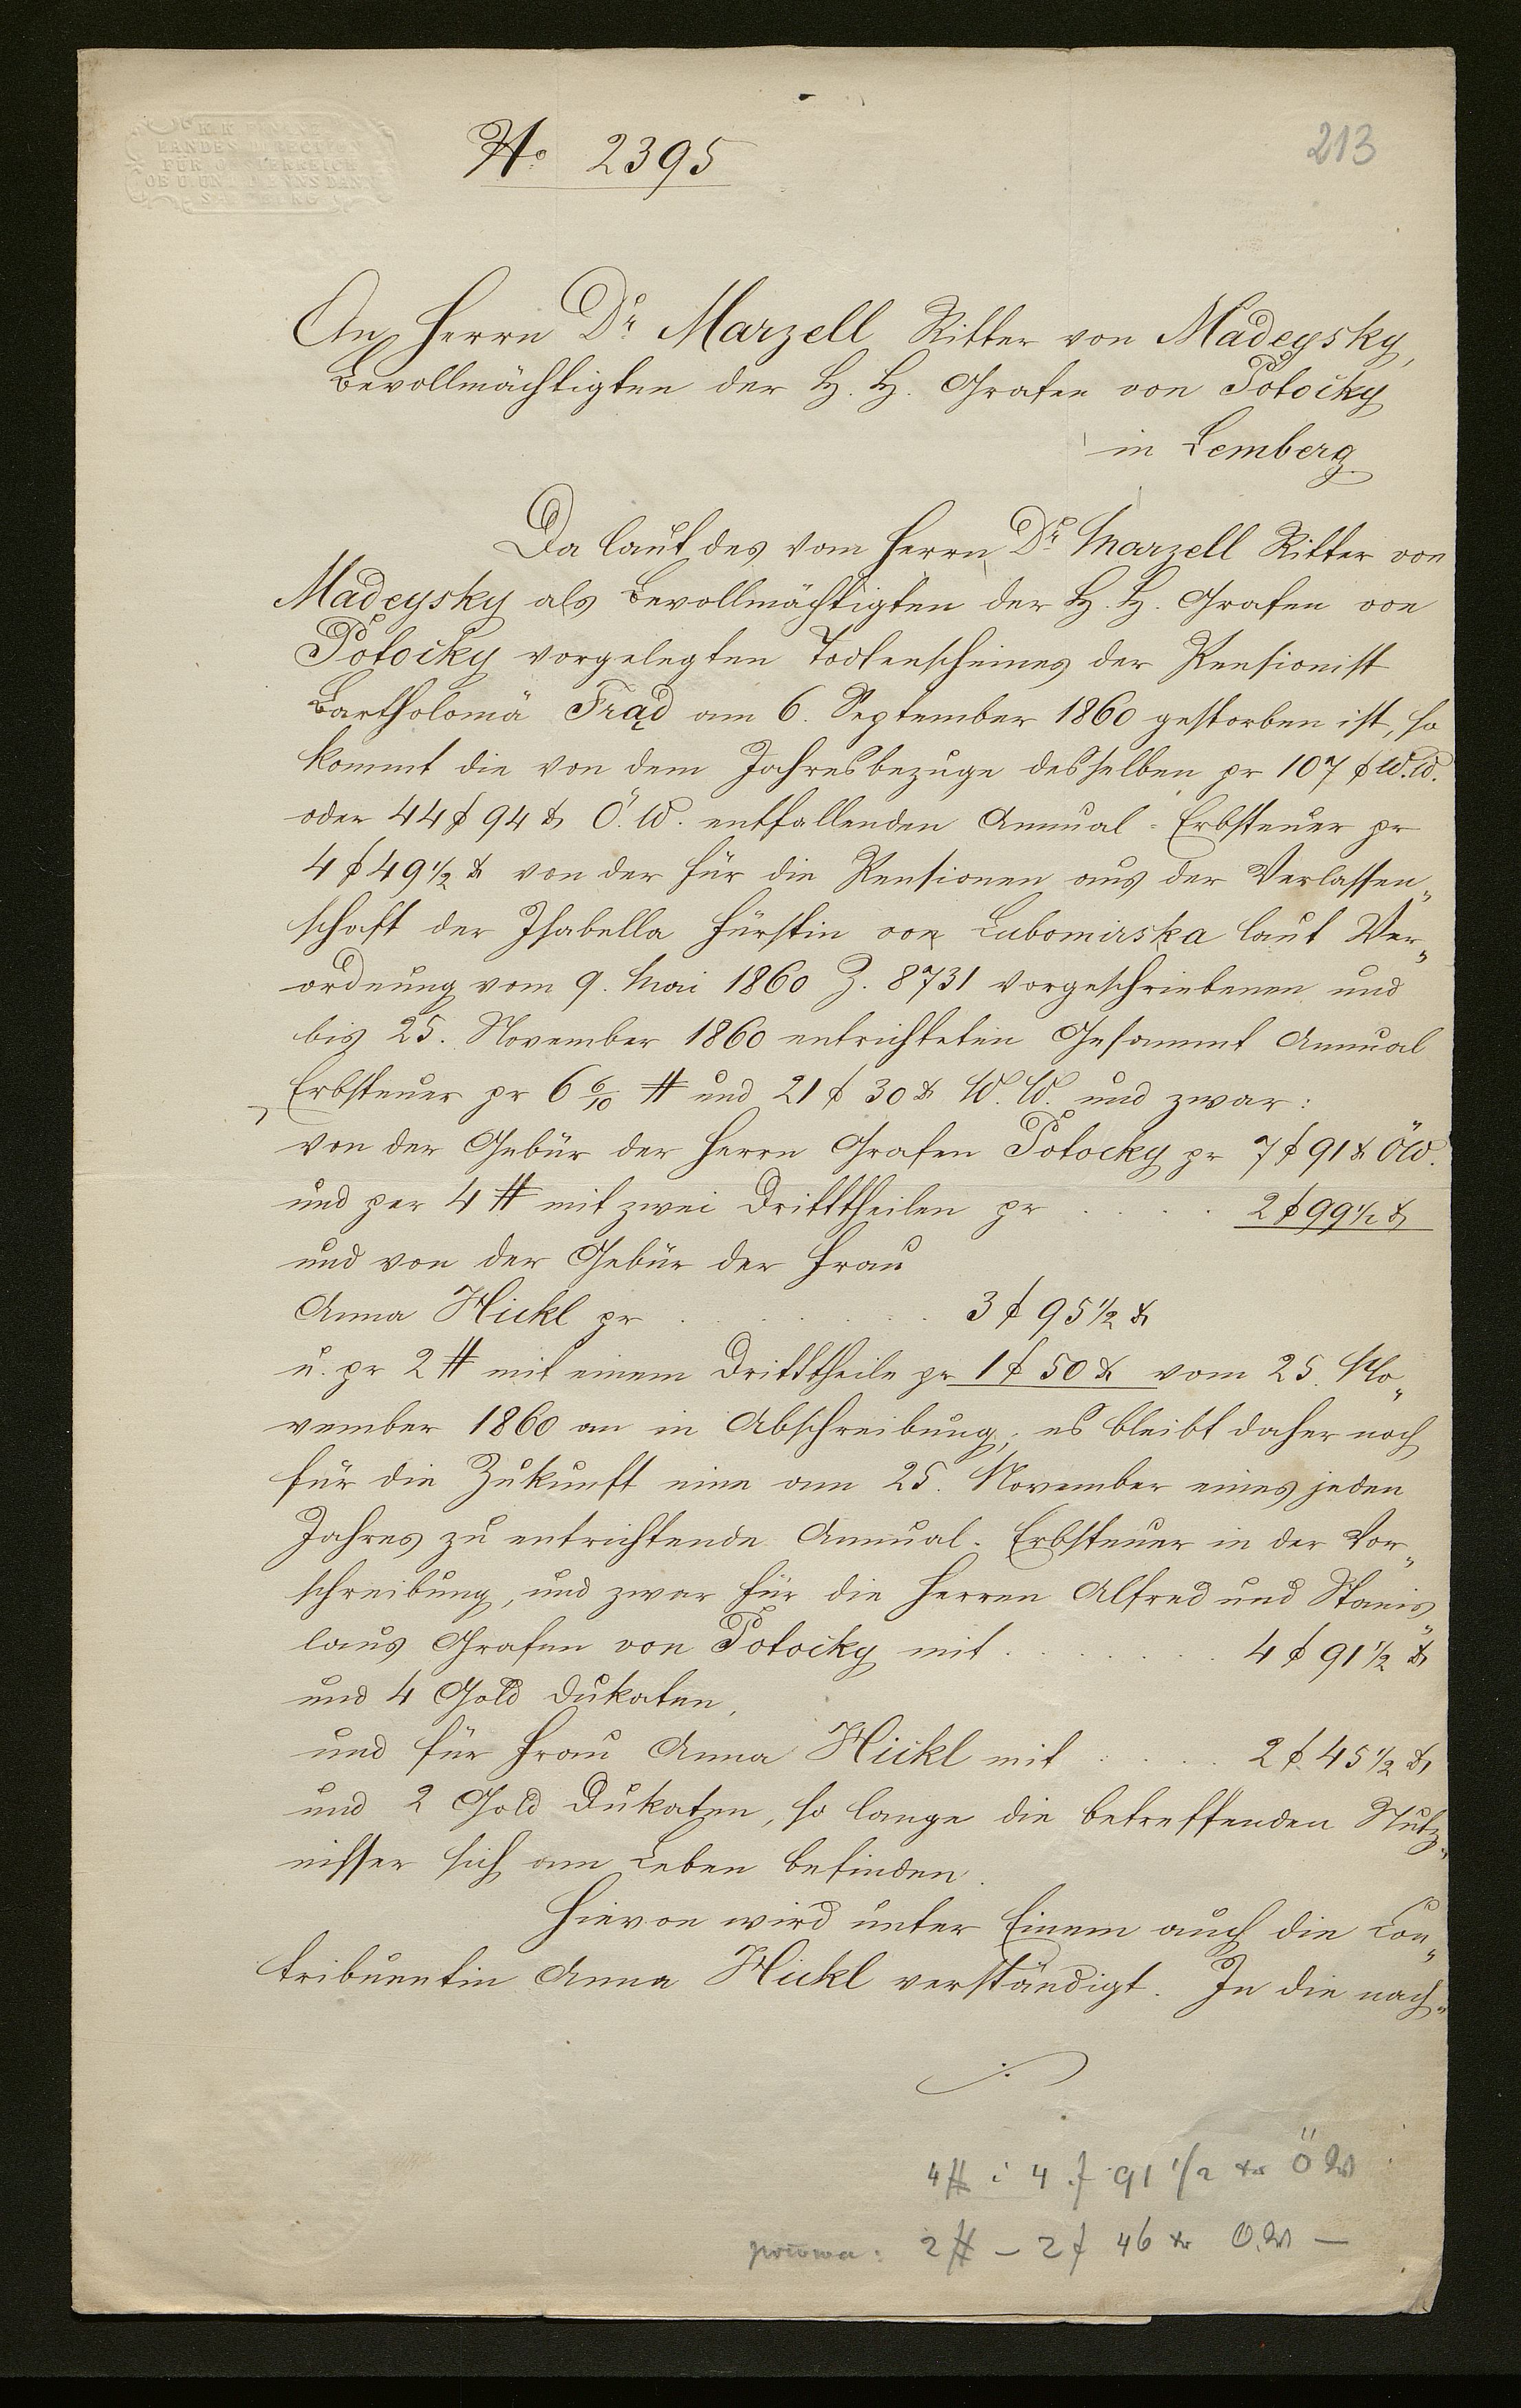 K. K. FINANZ
LANDES DIRECTION
FÜR OESTERREICH
OB U. UN. D. ENNS DAN
SALZBURG
No 2395
213
An Herrn Dr Marzell Ritter von Madeysky,
Bevollmächtigten der H. H. Grafen von Potocky
in Lemberg
Da laut des vom Herrn Dr Marzell Ritter von
Madeysky als Bevollmächtigten der H. H. Grafen von
Potocky vorgelegten Todtenscheines der Pensionist
Bartholomä Frąd am 6. September 1860 gestorben ist, so
kommt die von dem Jahresbezuge desselben pr 107 f W. W.
oder 44 f 94 x Ö. W. entfallenden Annual-Erbsteuer pr
4 f 49 1/2 x von der für die Pensionen aus der Verlassen„
schaft der Isabella Fürstin von Lubomirska laut Ver„
ordnung vom 9. Mai 1860 Z. 8731 vorgeschriebenen und
bis 25. November 1860 entrichteten Gesammt Annual
Erbsteuer pr 6 6/10 # und 21 f 30 x W. W. und zwar:
von der Gebür der Herrn Grafen Potocky pr 7 f 91 x ÖW.
und per 4 # mit zwei Dritttheilen pr . . . . 2 f 99 1/2 x
und von der Gebür der Frau
Anna Hickl pr . . . . . . 3 f 95 1/2 x
u. pr 2 # mit einem Dritttheile pr 1 f 50 x vom 25. No„
vember 1860 an in Abschreibung; es bleibt daher noch
für die Zukunft eine am 25. November eines jeden
Jahres zu entrichtende Annual-Erbsteuer in der Vor„
schreibung, und zwar für die Herren Alfred und Stanis„
laus Grafen von Potocky mit . . . . . . . 4 f 91 1/2 x
und 4 Gold Dukaten,
und für Frau Anna Hickl mit . . . . 2 f 45 1/2 x
und 2 Gold Dukaten, so lange die betreffenden Nutz„
nisser sich am Leben befinden.
Hievon wird unter Einem auch die Con„
tribuentin Anna Hickl verständigt. In die nach„
./.
4 # i 4 f 91 1/2 xr Ö W
2 # – 2 f 46 xr Ö.W –